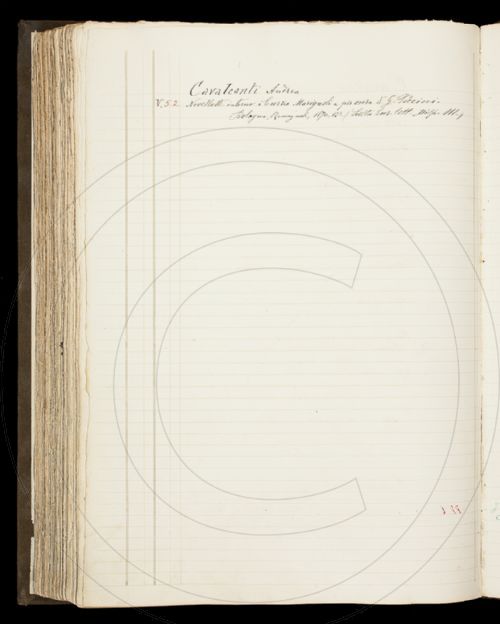 Cavalcanti Andrea
V. 5. 2. Novellette intorno a Curzio Marignolli, per cura di G. Piccini.
Bologna, Romagnoli, 1870. 12º. (Scelta Cur. lett.